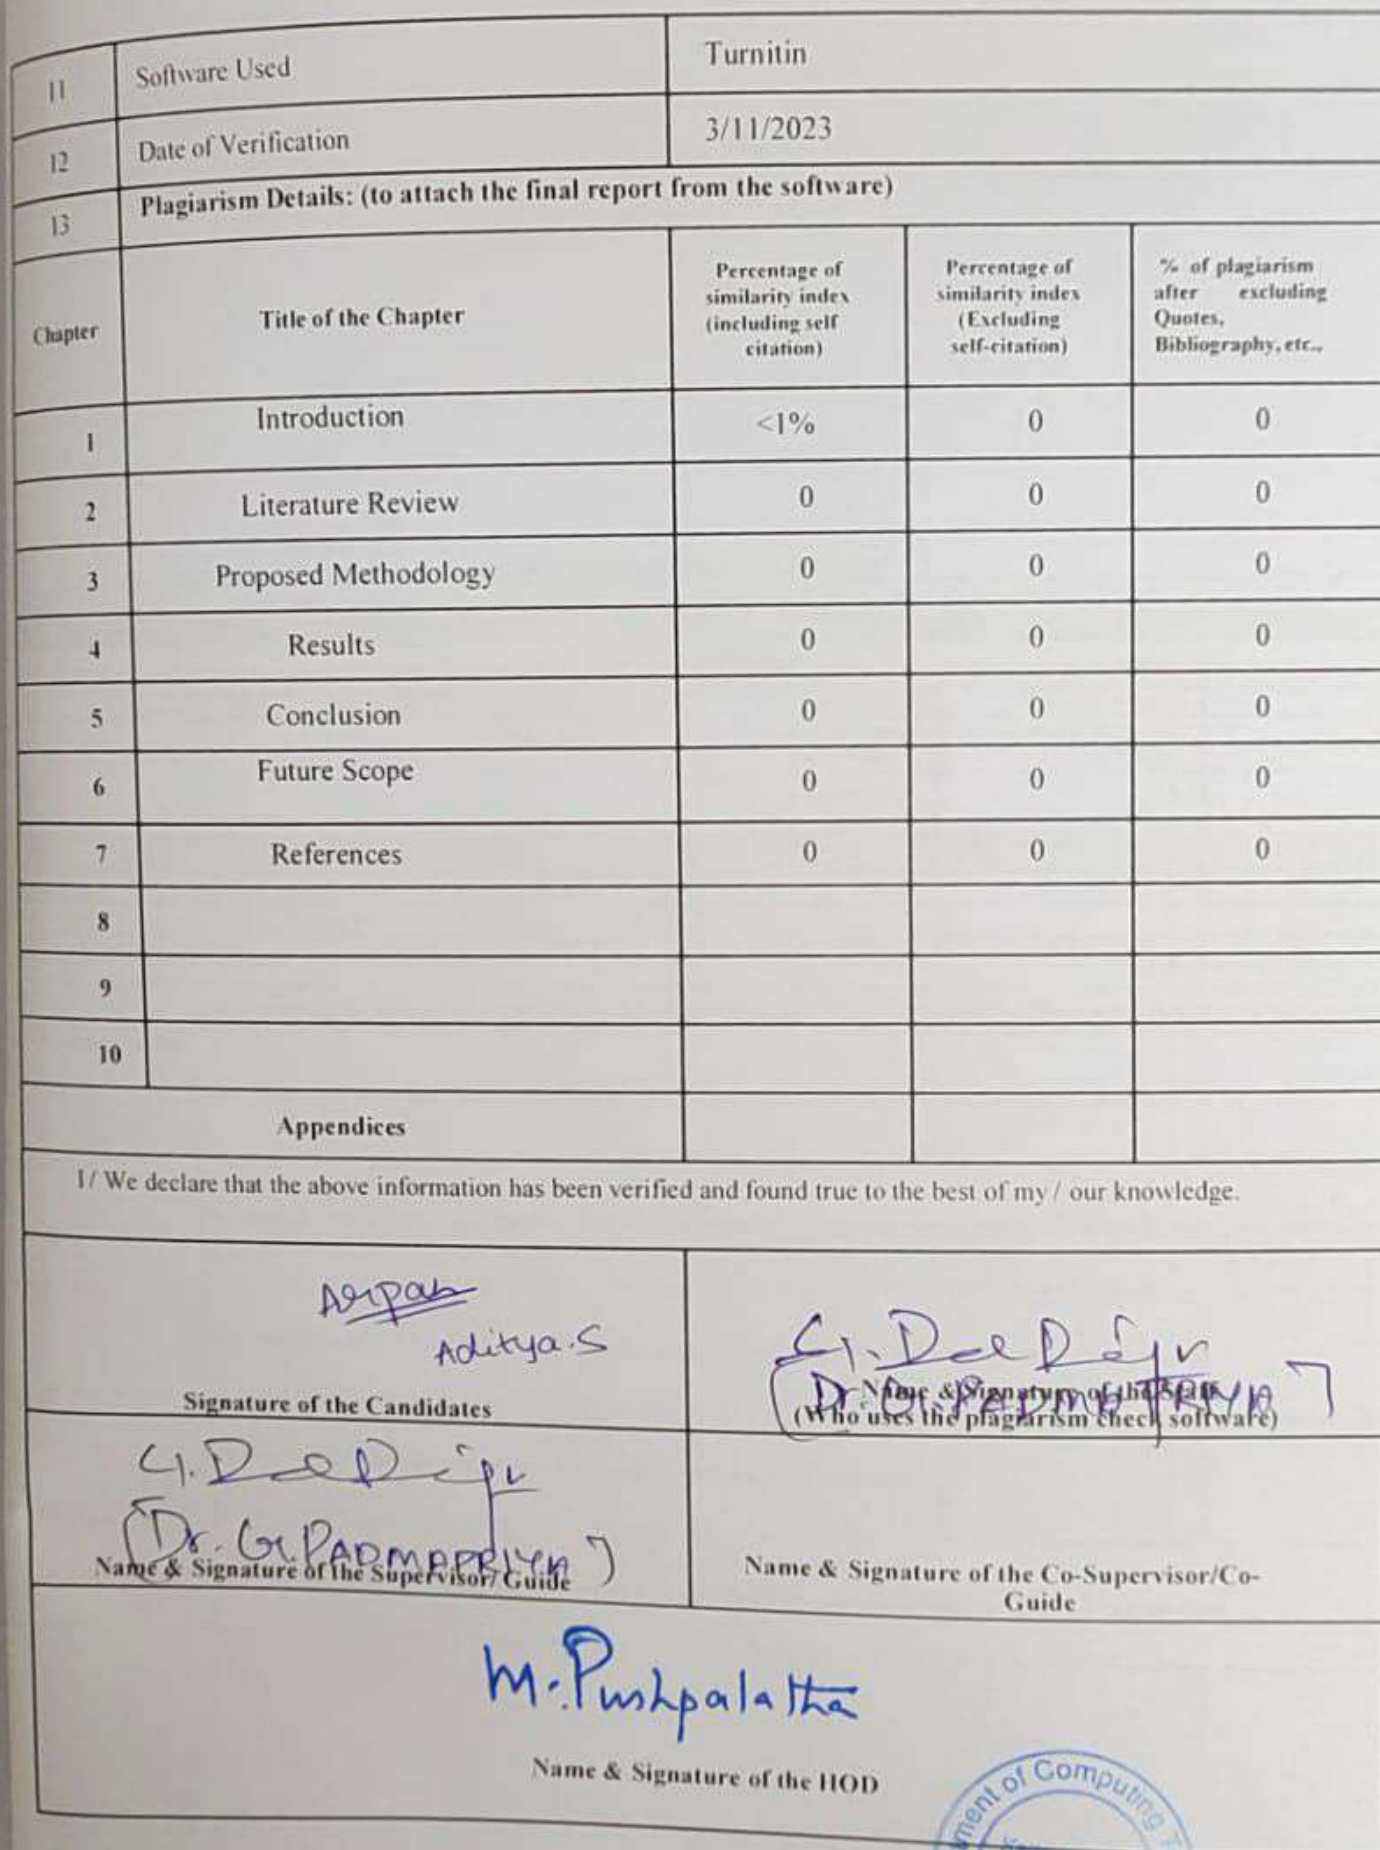 11 Software Used Turnitin
12 Date of Verification 3/11/2023
13 Plagiarism Details: (to attach the final report from the software)
Chapter
Title of the Chapter
Percentage of
similarity index
(including self
citation)
Percentage of
similarity index
(Excluding
self-citation)
% of plagiarism
after excluding
Quotes,
Bibliography, etc.,
1 Introduction <1% 0 0
2 Literature Review 0 0 0
3 Proposed Methodology 0 0 0
4 Results 0 0 0
5 Conclusion 0 0 0
6 Future Scope 0 0 0
7 References 0 0 0
8
9
10
Appendices
I/ We declare that the above information has been verified and found true to the best of my / our knowledge.
Arpan
Aditya.S
Signature of the Candidates
(Dr. G. PADMAPRIYA)
Name & Signature of the Staff
(Who uses the plagiarism check software)
(Dr. G. PADMAPRIYA)
Name & Signature of the Supervisor/ Guide
Name & Signature of the Co-Supervisor/Co-
Guide
M. Pushpalatha
Name & Signature of the HOD
of Computing